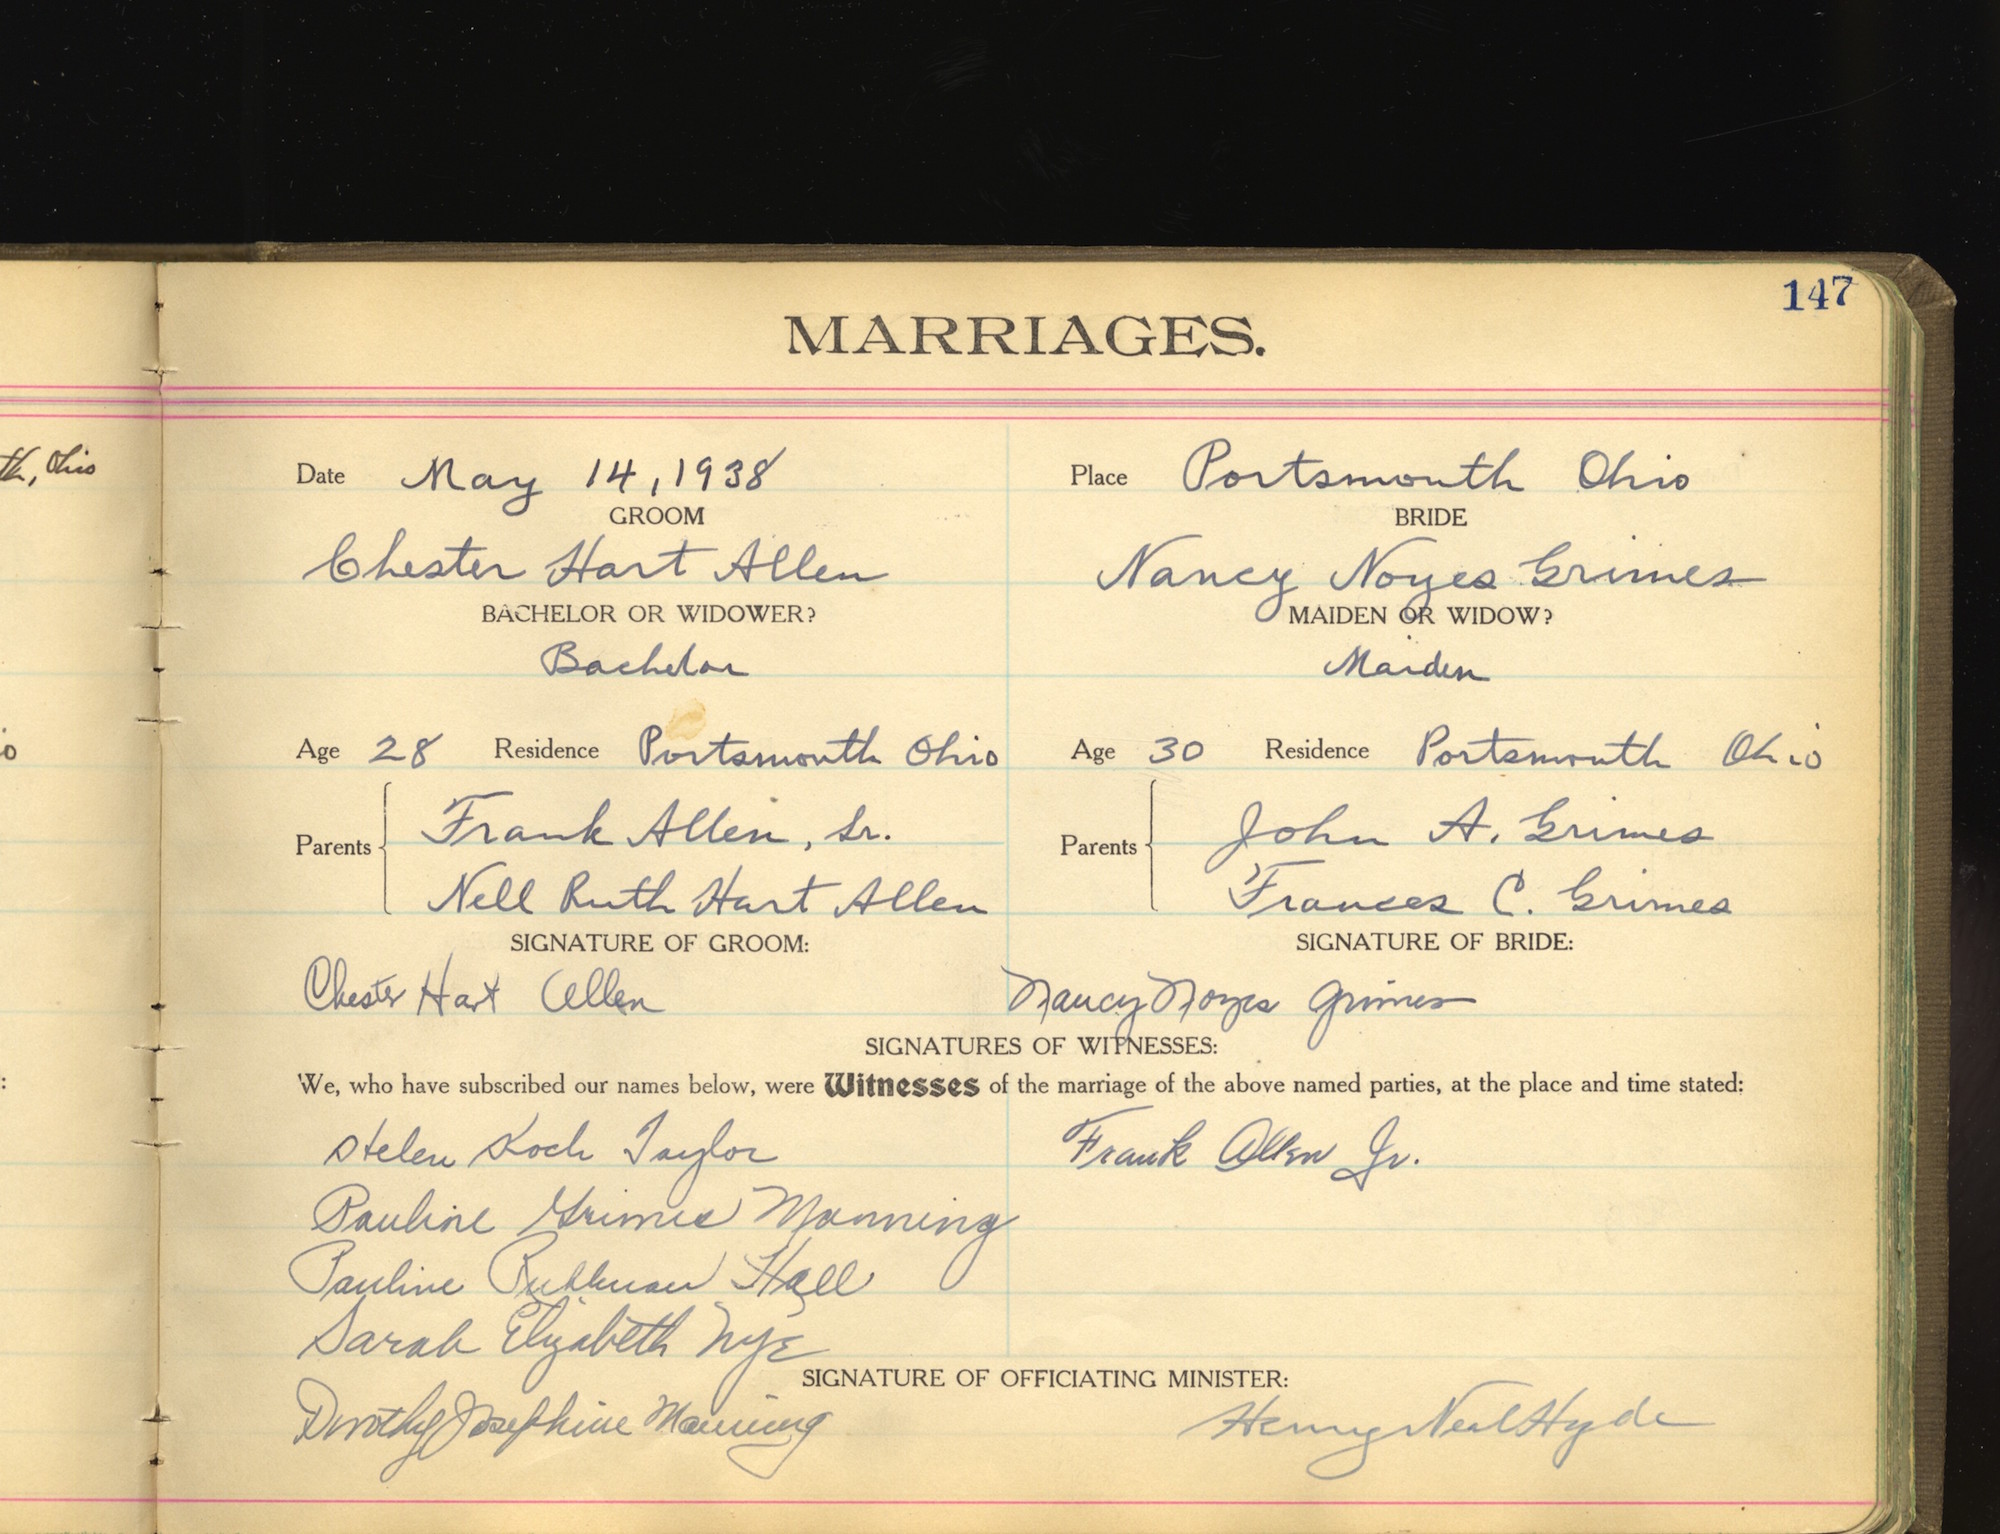 147
MARRIAGES.
th, Ohio
Date May 14, 1938 Place Portsmouth Ohio
GROOM BRIDE
Chester Hart Allen Nancy Noyes Grimes
BACHELOR OR WIDOWER? MAIDEN OR WIDOW?
Bachelor Maiden
o
Age 28 Residence Portsmouth Ohio Age 30 Residence Portsmouth Ohio
Parents Frank Allen, Sr. Parents John A. Grimes
Nell Ruth Hart Allen Frances C. Grimes
SIGNATURE OF GROOM: SIGNATURE OF BRIDE:
Chester Hart Allen Nancy Noyes Grimes
SIGNATURES OF WITNESSES:
: We, who have subscribed our names below, were Witnesses of the marriage of the above named parties, at the place and time stated:
Helen Koch Taylor Frank Allen Jr.
Pauline Grimes Manning
Pauline Hall
Sarah Elizabeth Nye
SIGNATURE OF OFFICIATING MINISTER:
Dorothy Josephine Manning Henry Neal Hyde